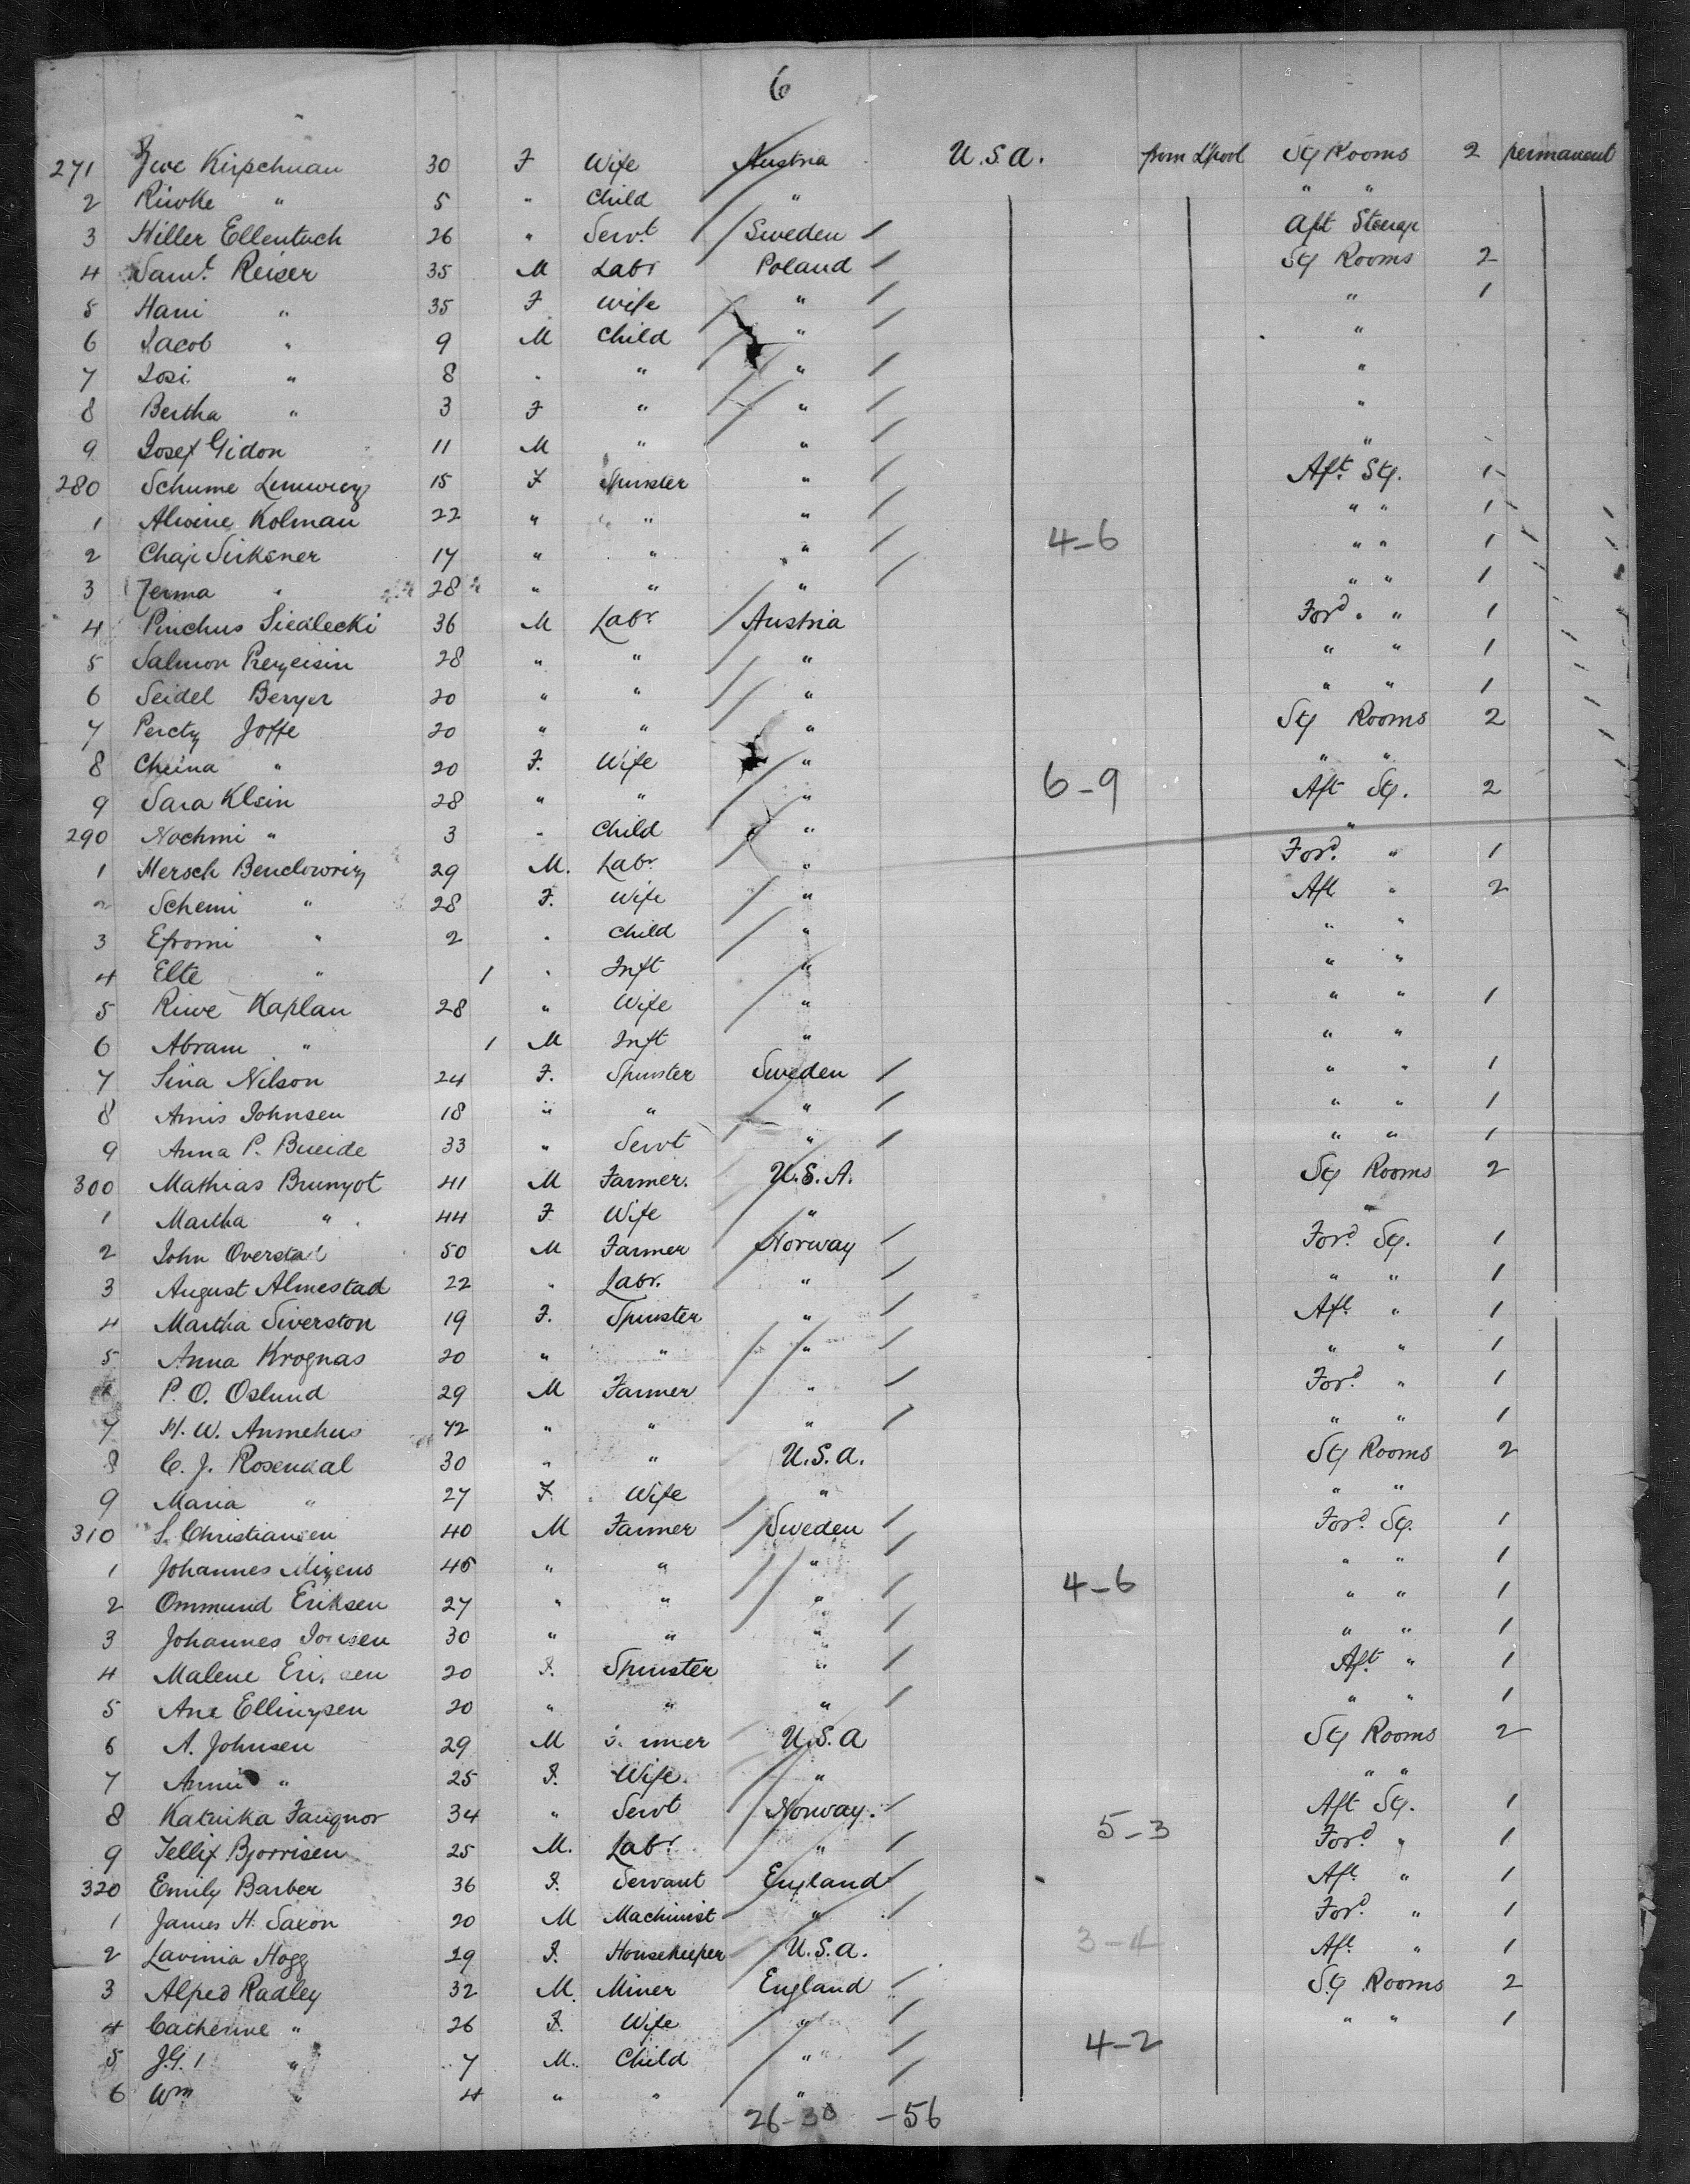 6
271 Zive Kirpchnan 30 F Wife Austria U.S.A. from L'pool Stg Rooms 2 permanent
2 Riwke " 5 " Child " " "
3 Hiller Ellentuch 26 " Servt Sweden / Aft Steerage
4 Saml. Reiser 35 M Labr Poland / Stg Rooms 2
5 Hani " 35 F Wife " / " 1
6 Jacob " 9 M Child " / "
7 Josi " 8 " " " / "
8 Bertha " 3 F " " / "
9 Josef Gidon 11 M " " / "
280 Schume 15 F Spinster " / Aft Stg. 1
1 Alwine Kolman 22 " " " / " " 1
2 Chaje Sirksner 17 " " " / 4-6 " " 1
3 Zerma " 28 " " " / " " 1
4 Pinchus Siedlecki 36 M Labr Austria Ford " " 1
5 Salmon Prezeisin 28 " " " " " 1
6 Seidel Berger 20 " " " " " 1
7 Peretz Joffe 20 " " " Stg Rooms 2
8 Cheina " 20 F. Wife " " "
9 Sara Klein 28 " " " 6-9 Aft Stg. 2
290 Nochmi " 3 " Child " "
1 Hersch Bendowriz 29 M. Labr " Ford. " 1
2 Schemi " 28 F. Wife " Aft " 2
3 Efromi " 2 " Child " " "
4 Elte " 1 " Inft " " "
5 Riwe Kaplan 28 " Wife " " " 1
6 Abram " 1 M Inft " " "
7 Sina Nilson 24 F. Spinster Sweden / " " 1
8 Amis Johnsen 18 " " " / " " 1
9 Anna P. Bueide 33 " Servt " / " " 1
300 Mathias Brunyot 41 M Farmer. U.S.A. Stg Rooms 2
1 Martha " 44 F Wife " "
2 John Overstad 50 M Farmer Norway / Ford. Stg. 1
3 August Almestad 22 " Labr. " / " " 1
4 Martha Siverston 19 F. Spinster " / Aft. " 1
5 Anna Krognas 20 " " " / " " 1
P. O. Oslund 29 M Farmer " / Ford. " 1
7 H. W. Anmehus 42 " " " / " " 1
8 C. J. Rosendal 30 " " U.S.A. Stg Rooms 2
9 Maria " 27 F. Wife " " "
310 S. Christiansen 40 M Farmer Sweden / Ford. Stg. 1
1 Johannes 45 " " " / " " 1
2 Ommund Eriksen 27 " " " / 4-6 " " 1
3 Johannes 30 " " " / " " 1
4 Malene 20 F. Spinster " / Aft. " 1
5 Ane Ellingsen 20 " " " / " " 1
6 A. Johnsen 29 M U.S.A Stg Rooms 2
7 Annie " 25 F. Wife. " " "
8 Katrika Fangnor 34 " Servt Norway. / Aft Stg. 1
9 Tellif Bjorrisen 25 M. Labr. " / 5-3 Ford. " 1
320 Emily Barber 36 F. Servant England / Aft " 1
1 James H. Saxon 20 M Machinist " / Ford. " 1
2 Lavinia Hogg 29 F. Housekeeper U.S.A. 3-4 Aft. " 1
3 Alfred Radley 32 M. Miner England / Stg Rooms 2
4 Catherine " 26 F. Wife " / " " 1
5 J.G. " 7 M. Child " / 4-2
6 Wm " 4 " " " /
26-30 -56